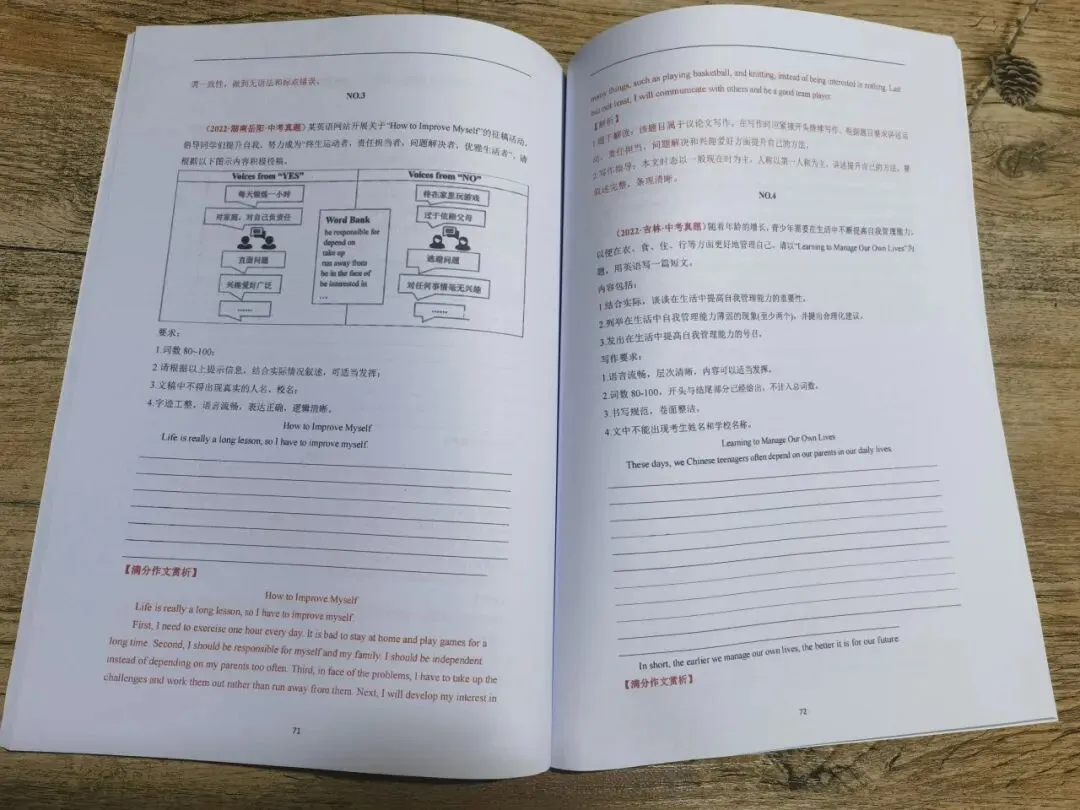 谓一致性，做到无语法和标点错误。
NO.3
（2022·湖南岳阳·中考真题）某英语网站开展关于“How to Improve Myself”的征稿活动，
倡导同学们提升自我、努力成为“终生运动者，责任担当者，问题解决者，优雅生活者”。请
根据以下图示内容积极投稿。
Voices from “YES”
每天锻炼一小时
对家庭，对自己负责任
直面问题
兴趣爱好广泛
......
Word Bank
be responsible for
depend on
take up
run away from
be in the face of
be interested in
...
Voices from “NO”
待在家里玩游戏
过于依赖父母
逃避问题
对任何事情毫无兴趣
......
要求：
1.词数 80~100；
2.请根据以上提示信息，结合实际情况叙述，可适当发挥；
3.文稿中不得出现真实的人名、校名；
4.字迹工整，语言流畅，表达正确，逻辑清晰。
How to Improve Myself
Life is really a long lesson, so I have to improve myself.
【满分作文赏析】
How to Improve Myself
Life is really a long lesson, so I have to improve myself.
First, I need to exercise one hour every day. It is bad to stay at home and play games for a
long time. Second, I should be responsible for myself and my family. I should be independent
instead of depending on my parents too often. Third, in face of the problems, I have to take up the
challenges and work them out rather than run away from them. Next, I will develop my interest in
71
many things, such as playing basketball, and knitting, instead of being interested in nothing. Last
but not least, I will communicate with others and be a good team player.
【解析】
1.题干解读：该题目属于议论文写作。在写作时应紧接开头继续写作，根据题目要求讲述运
动、责任担当，问题解决和兴趣爱好方面提升自己的方法。
2.写作指导：本文时态以一般现在时为主，人称以第一人称为主，讲述提升自己的方法，要
叙述完整，条理清晰。
NO.4
（2022·吉林·中考真题）随着年龄的增长，青少年需要在生活中不断提高自我管理能力，
以便在衣、食、住、行等方面更好地管理自己。请以“Learning to Manage Our Own Lives”为
题，用英语写一篇短文。
内容包括：
1.结合实际，谈谈在生活中提高自我管理能力的重要性。
2.列举在生活中自我管理能力薄弱的现象(至少两个)，并提出合理化建议。
3.发出在生活中提高自我管理能力的号召。
写作要求：
1.语言流畅，层次清晰，内容可以适当发挥。
2.词数 80-100，开头与结尾部分已经给出，不计入总词数。
3.书写规范，卷面整洁。
4.文中不能出现考生姓名和学校名称。
Learning to Manage Our Own Lives
These days, we Chinese teenagers often depend on our parents in our daily lives.
In short, the earlier we manage our own lives, the better it is for our future
【满分作文赏析】
72